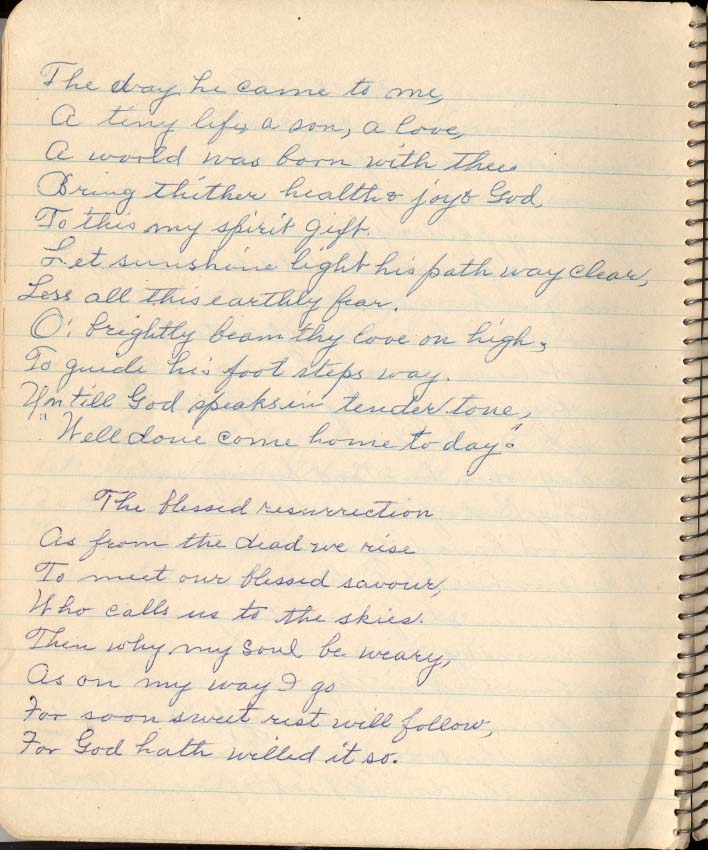 The day he came to me,
A tiny life, a son, a love,
A world was born with thee
Bring thither health & joy & God,
To this my spirit gift.
Let sunshine light his path way clear,
Less all this earthly fear.
O! brightly beam thy love on high,
To guide his foot steps way.
Untill God speaks in tender tone,
"Well done come home to day."
The blessed resurrection
As from the dead we rise
To meet our blessed savour,
Who calls us to the skies.
Then why my soul be weary,
As on my way I go
For soon sweet rest will follow,
For God hath willed it so.